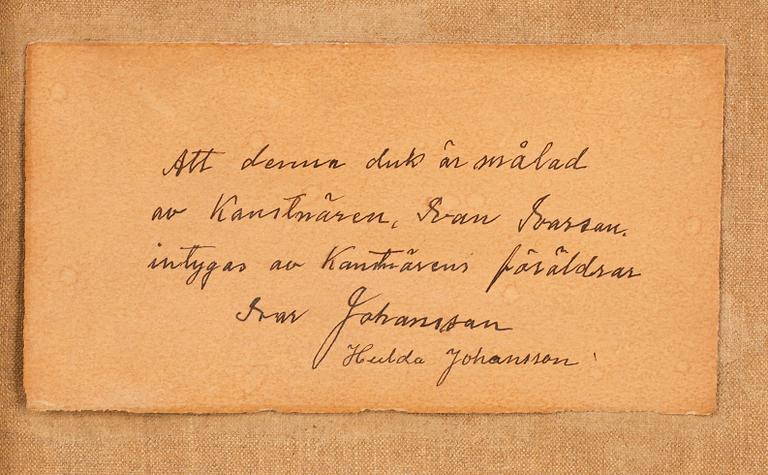 Att denna duk är målad
av Konstnären, Ivan Ivarson.
intygas av Konstnärens föräldrar
Ivar Johansson
Hulda Johansson